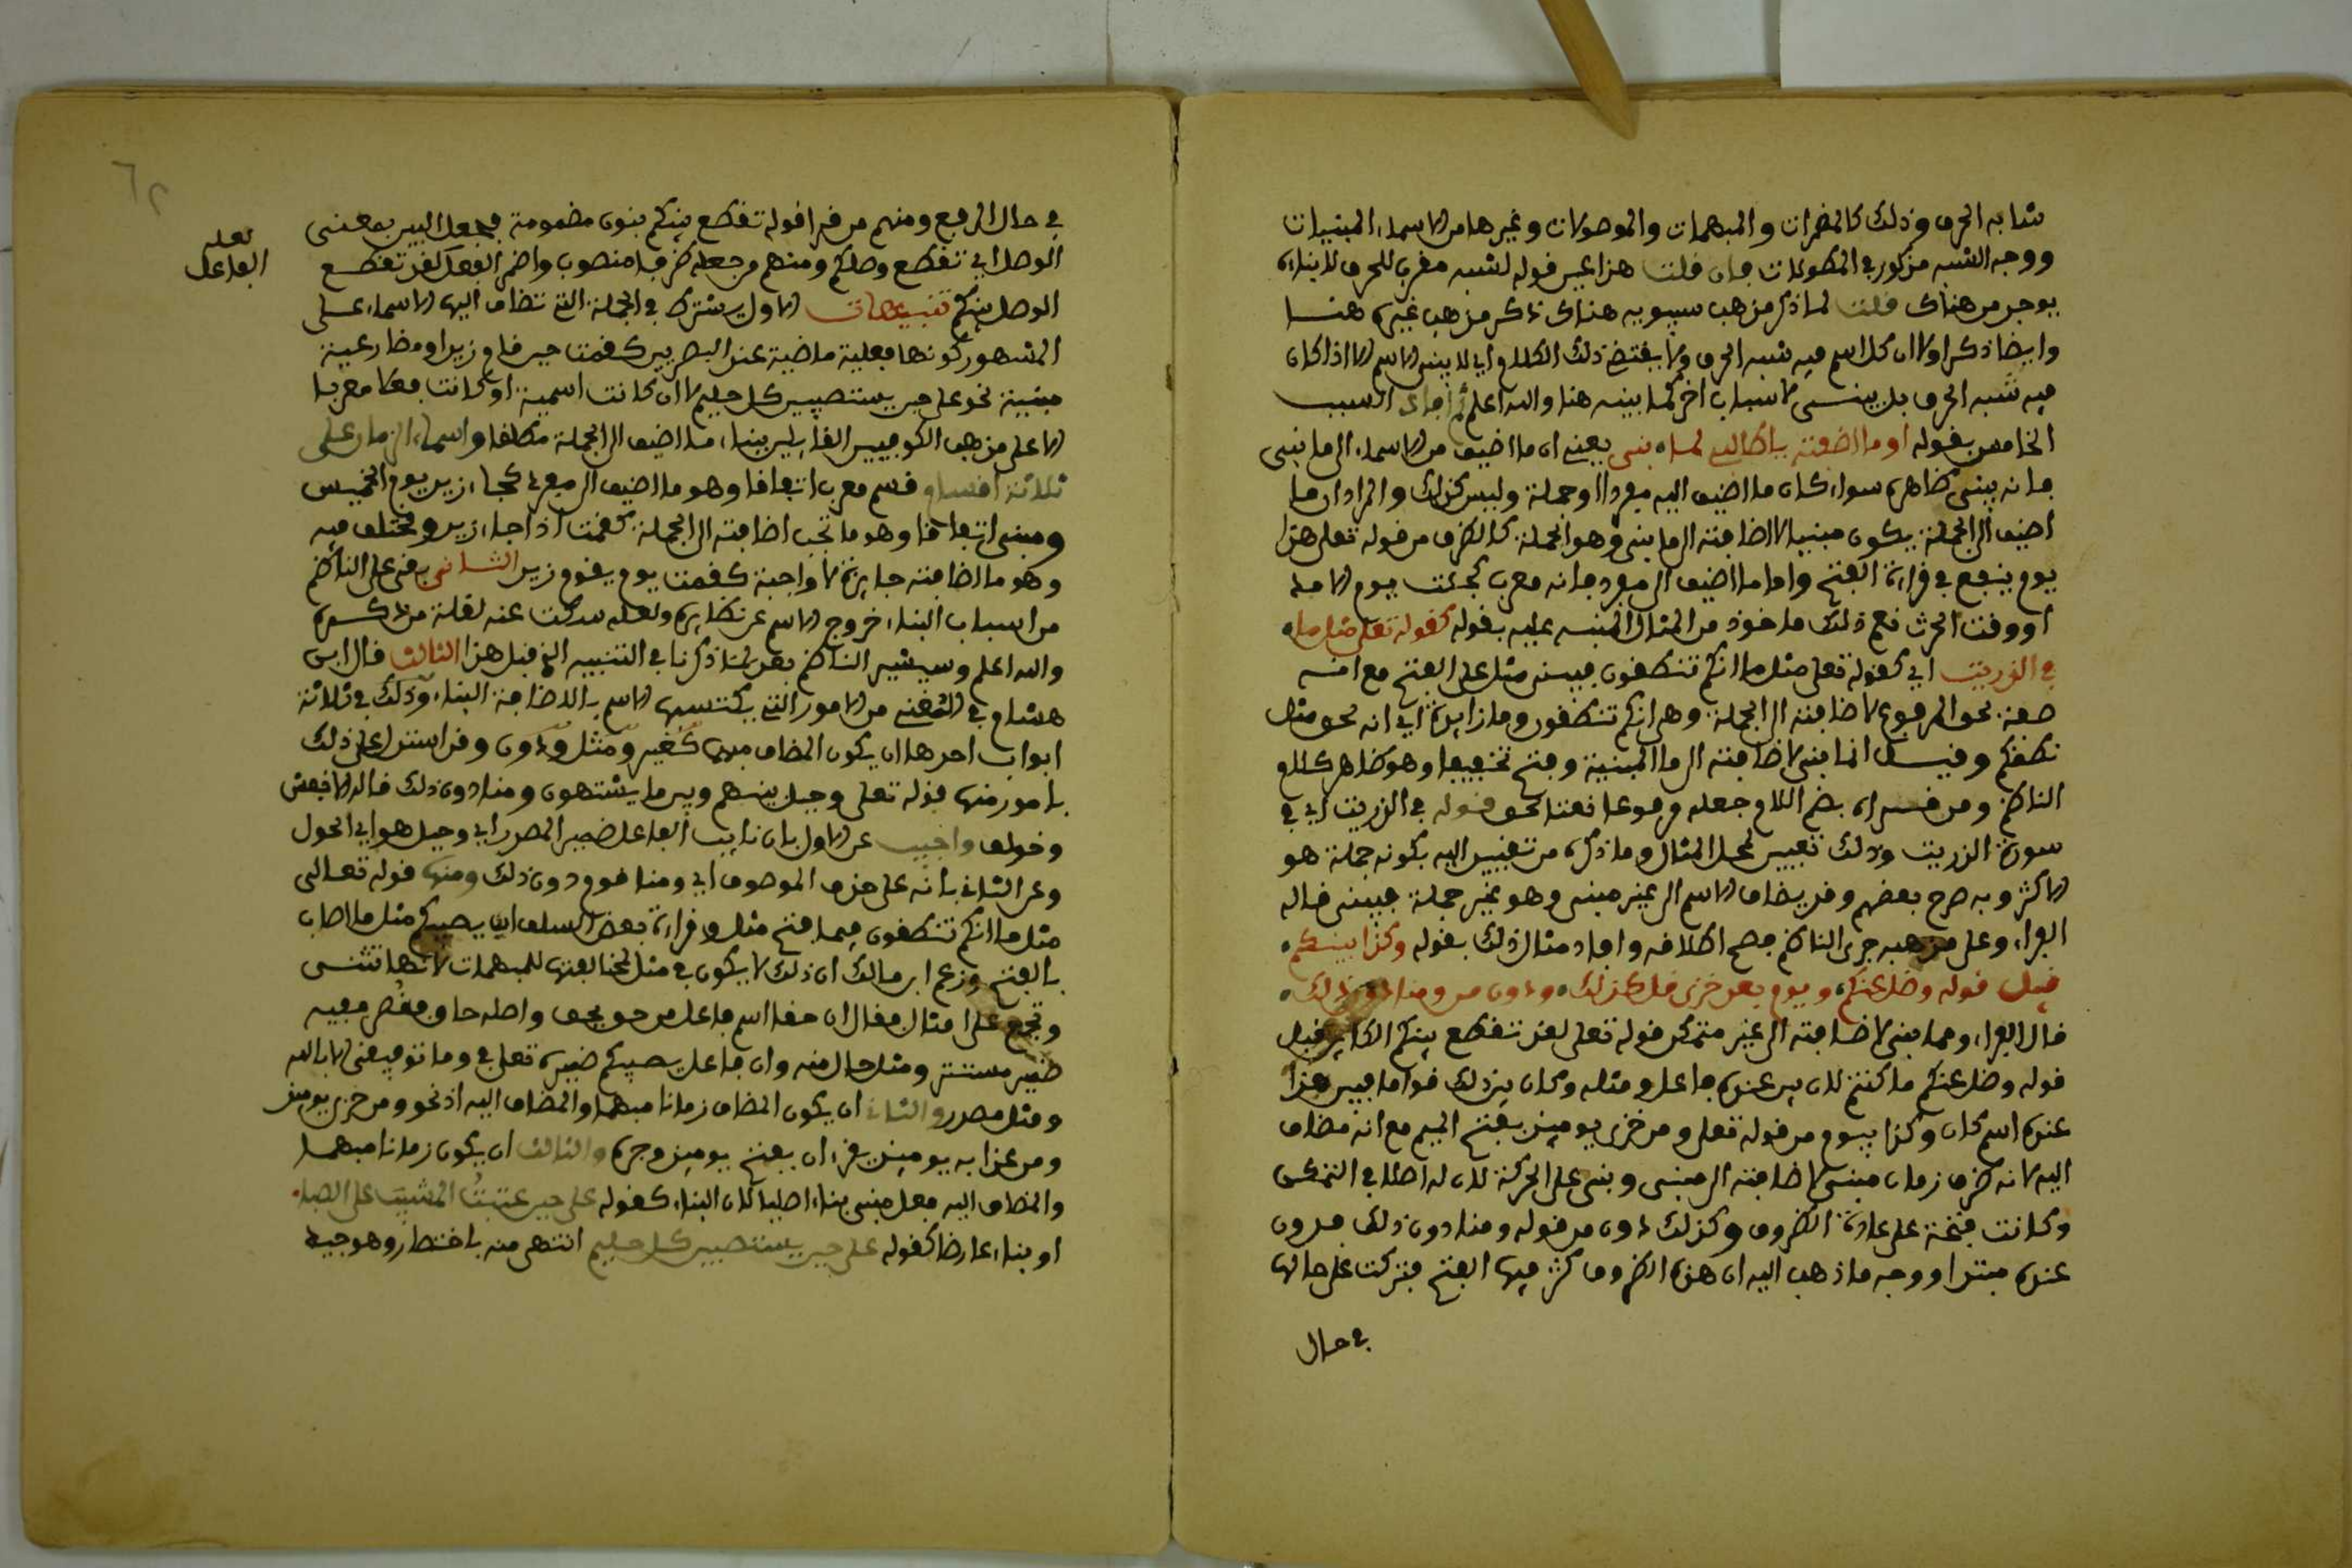 شابه الحرف وذلك كالمضمرات والمبهمات والموصولات وغيرها من الاسماء المبنيات
ووجه الشبه مذكور في المطولات فان قلت هذا عين قوله لشبه مقرب للحرف للبناء
يوجد من هناك قلت لما ذكر مذهب سيبويه هناك ذكر مذهب غيره هنا
وايضا ذكر اولا ان كل اسم فيه شبه الحرف ولا يقتضي ذلك الكلام اي لا يبنى الاسم الا اذا كان
فيه شبه الحرف بل يبنى لاسباب اخر كما بينه هنا والله اعلم ثم افاد السبب
الخامس بقوله او ما اضفته يا طالب لما بني يعني ان ما اضيف من الاسماء الى ما بني
فانه يبنى ظاهره سواء كان ما اضيف اليه مفردا او جملة وليس كذلك والمراد ان ما
اضيف الى الجملة يكون مبنيا لاضافته الى ما بني وهو الجملة كالظرف من قوله تعلى هذا
يوم ينفع في قراءة الفتح واما ما اضيف الى مفرد فانه معرب كجئت يوم
او وقت الحرث نعم ذلك ماخوذ من المثال المنبه عليه بقوله كقوله تعلى مثل ما
في الذريت اي كقوله تعلى مثل ما انكم تنطقون فبني مثل على الفتح مع انه
صفة لحق المرفوع لاضافته الى الجملة وهي انكم تنطقون وما زايدة اي انه لحق مثل
نطقكم وقيل انما بني لاضافته الى ما المبنية وفتح تخفيفا وهو ظاهر كلام
الناظم ومن قراه بضم اللام جعله مرفوعا نعتا لحق قوله في الذريت اي في
سورة الذريت وذلك تعيين لمحل المثال وما ذكره من تقييد اليه بكونه جملة هو
الاكثر وبه صرح بعضهم وقد يضاف الاسم الى غير مبني وهو غير جملة فيبنى قاله
الفراء وعلى مذهبه جرى الناظم فصح اطلاقه وافاد مثال ذلك بقوله وكذا بينكم
قبل قوله وضل عنكم ويوم بعد خزي قل كذلك ودون من ومنا دون ذلك
قال الفراء ومما بني لاضافته الى غير متمكن قوله تعلى لقد تقطع بينكم الكاين قبل
قوله وضل عنكم ما كنتم لان بين عنده فاعل ومثله وكان بين ذلك قواما فبين هذا
عنده اسم كان وكذا يوم من قوله تعلى ومن خزي يوميذ بفتح الميم مع انه مضاف
اليه لانه ظرف زمان مبني لاضافته الى مبني وبني على الحركة لان له اصلا في التمكن
وكانت فتحة على عادة الظروف وكذلك دون من قوله ومنا دون ذلك فدون
عنده مبتدا ووجه ما ذهب اليه ان هذه الظروف كثر فيها الفتح فتركت على حالها
في حال
في حال الرفع ومنهم من قرا قوله تقطع بينكم بنون مضمومة فجعل البين بمعنى
الوصل اي تقطع وصلكم ومنهم من جعله ظرفا منصوب واضمر الفعل لقد تقطع
الوصل بينكم تنبيهات الاول يشترط في الجملة التي تضاف اليها الاسماء على
المشهور كونها فعلية ماضية عند البصريين كقمت حين قام زيد او مضارعية
مبنية نحو على حين يستصبين كل حليم لا ان كانت اسمية او كانت فعلا معربا
الا على مذهب الكوفيين القايلين ببناء ما اضيف الى الجملة مطلقا واسماء الزمان على
ثلاثة اقسام قسم معرب اتفاقا وهو ما اضيف الى مفرد كجاء زيد يوم الخميس
ومبني اتفاقا وهو ما تجب اضافته الى الجملة كقمت اذا جاء زيد ومختلف فيه
وهو ما اضافته جايزة لا واجبة كقمت يوم يقوم زيد الثاني بقي على الناظم
من اسباب البناء خروج الاسم عن نظايره ولعله سكت عنه لقلة من ذكره
والله اعلم وسيشير الناظم بعد لما ذكرنا في التنبيه الذي قبل هذا الثالث قال ابن
هشام في المغني من الامور التي يكتسبها الاسم بالاضافة البناء وذلك في ثلاثة
ابواب احدها ان يكون المضاف مبهما كغير ومثل ودون وقد استدل على ذلك
بامور منها قوله تعلى وحيل بينهم وبين ما يشتهون ومنا دون ذلك قاله الاخفش
وخولف واجيب عن الاول بان نايب الفاعل ضمير المصدر اي وحيل هو اي الحول
وعن الثاني بانه على حذف الموصوف اي ومنا قوم دون ذلك ومنها قوله تعالى
مثل ما انكم تنطقون فيما فتح مثل وقراءة بعض السلف ان يصيبكم مثل ما اصاب
بالفتح وزعم ابن مالك ان ذلك لا يكون في مثل لمخالفتها للمبهمات لانها تثنى
وتجمع على امثال فقال ان حقا اسم فاعل من حق يحق واصله حاق فقصر ففيه
ضمير مستتر ومثل حال منه وان فاعل يصيبكم ضميره تعلى في وما توفيقي الا بالله
ومثل مصدر والثاني ان يكون المضاف زمانا مبهما والمضاف اليه اذ نحو ومن خزي يوميذ
ومن عذاب يوميذ يقرءان بفتح يوميذ وجره والثالث ان يكون زمانا مبهما
والمضاف اليه فعل مبني بناء اصليا كان البناء كقوله على حين عتبتُ المشيب على الصبا
او بناء عارضا كقوله على حين يستصبين كل حليم انتهى منه باختصار وهو جيد
لعله
الفاعل
٦٢